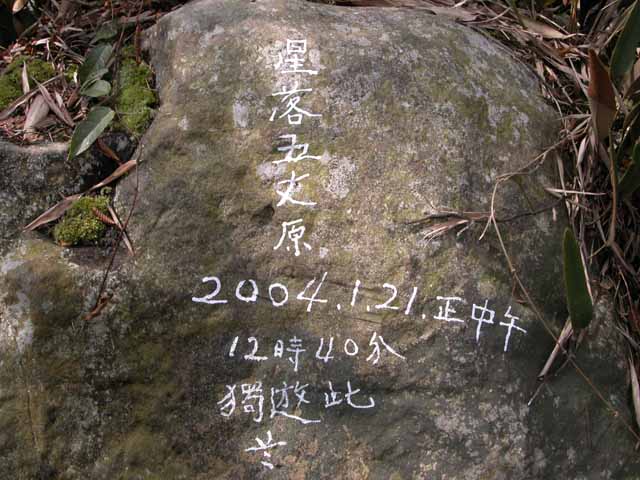 星落五丈原
2004.1.21.正中午
12時40分
獨遊此